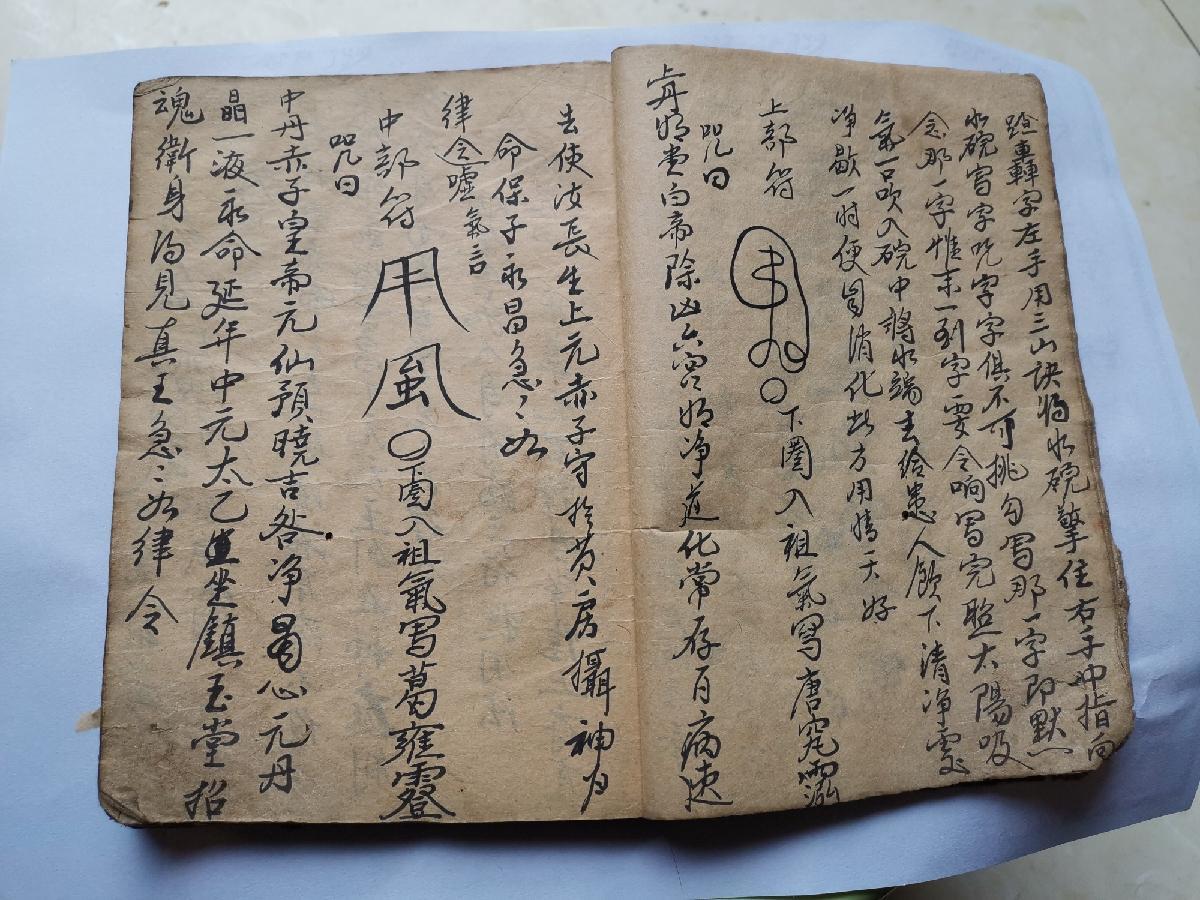 轟字左手用三山訣將水碗擎住右手中指向
水碗寫字咒字字俱不可挑勾寫那一字即默
念那一字惟末一到字要令响寫完照太陽吸
氣一口吹入碗中將水端去給患人飲下清净處
净歇一时便自消化此方用情天好
上部符
〇下圈入祖氣寫唐
咒曰
上丹明堂白帝除凶六宫明净道化常存百病速
去使汝長生上元赤子守於黄房攝神
命保子永昌急〻如
律令噓氣言
中部符
〇下圈入祖氣寫葛雍
咒曰
中丹赤子皇帝元仙預曉吉咎净心元丹
晶一液永命延年中元太乙坐鎮玉堂招
魂衛身得見真王急〻如律令